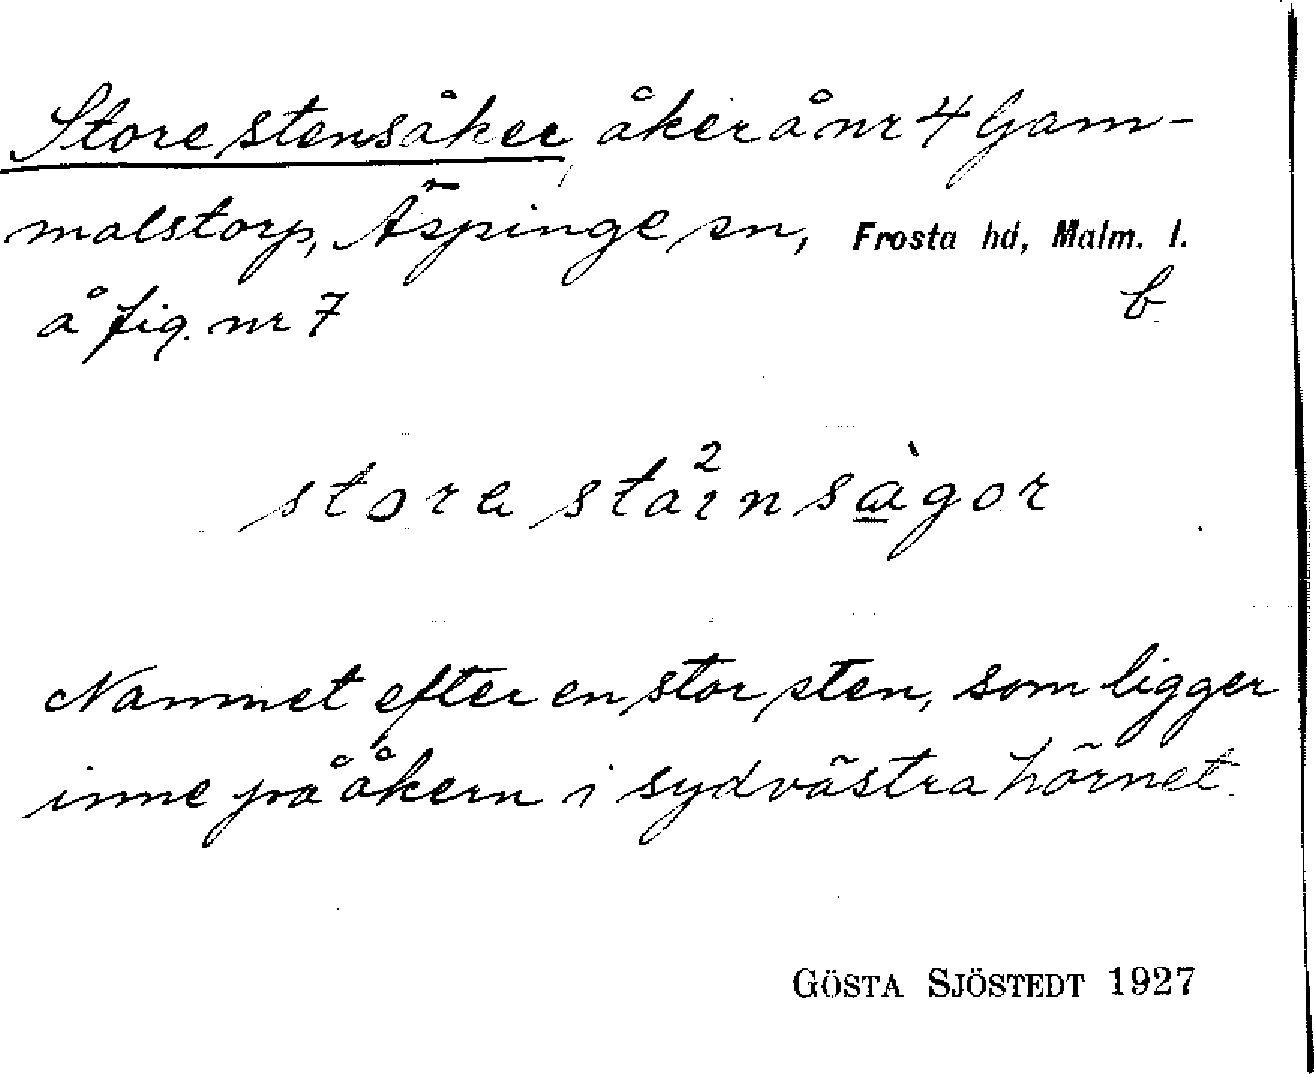 Store stensåker, åker å nr 4 Gam-
malstorp, Äspinge sn, Frosta hd, Malm. l.
å fig. nr 7 b.
store sta2insàgor
Namnet efter en stor sten, som ligger
inne på åkern i sydvästra hörnet.
GÖSTA SJÖSTEDT 1927